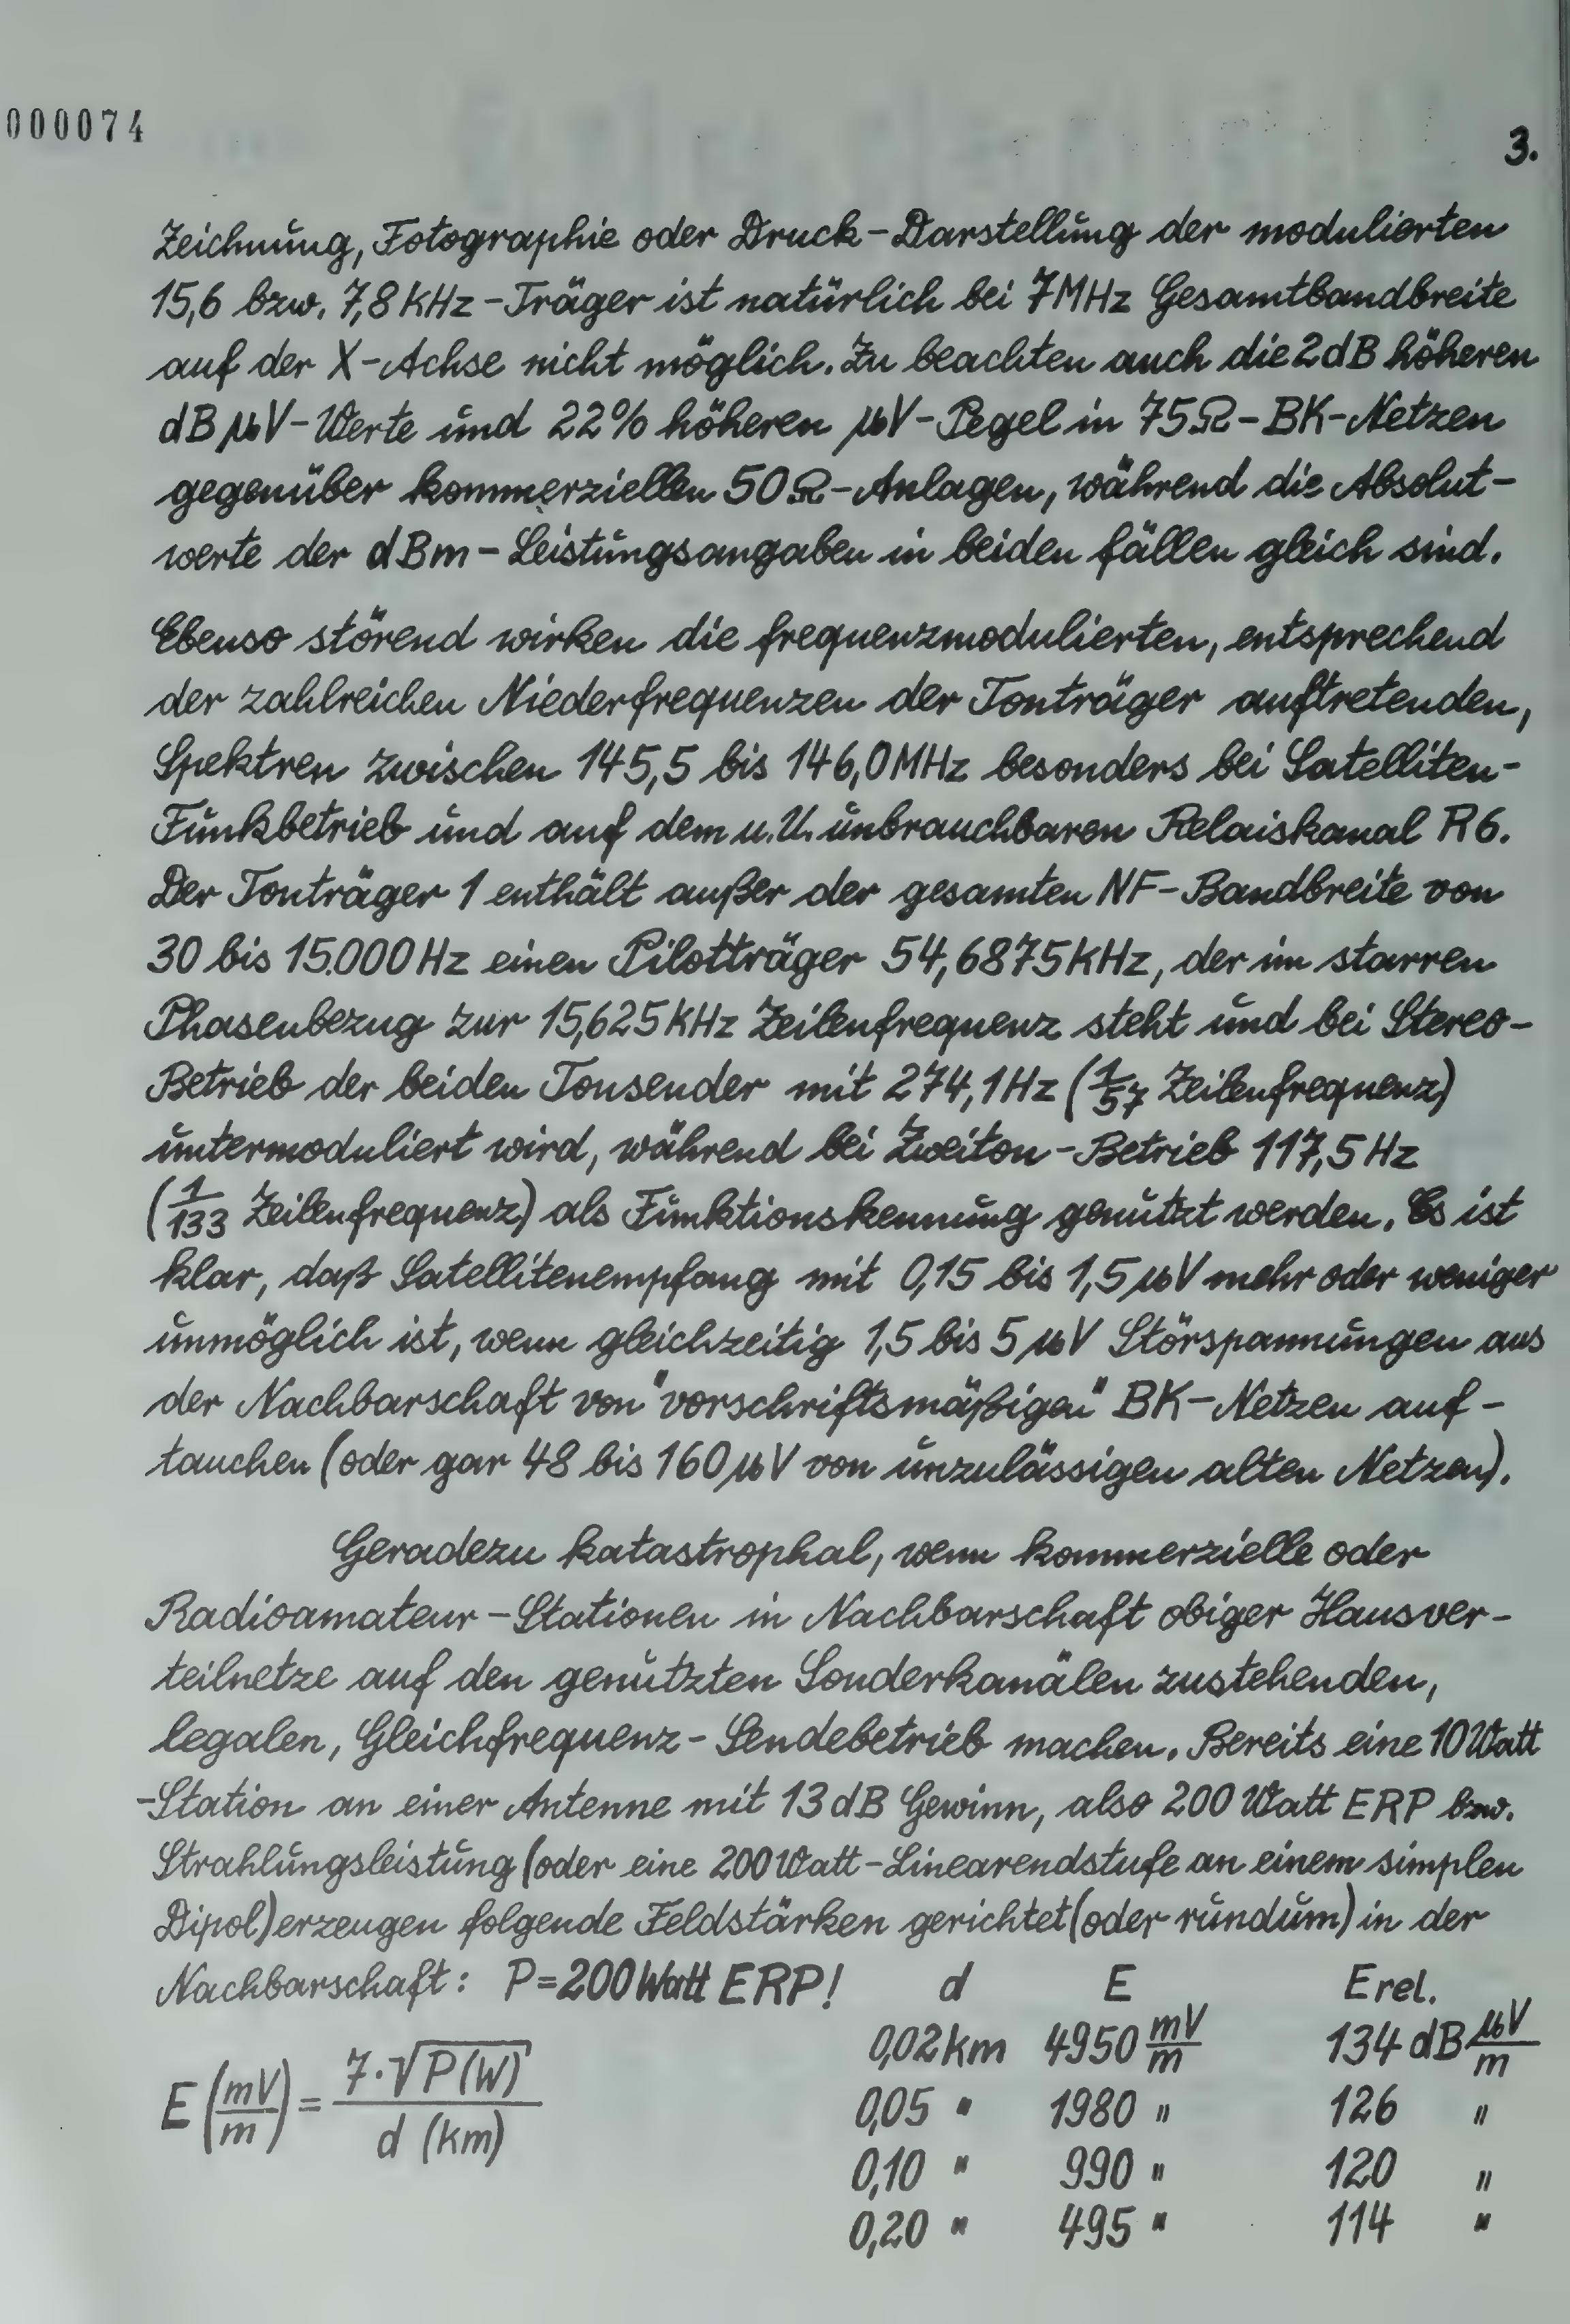 000074
3.
Zeichnung, Fotographie oder Druck-Darstellung der modulierten
15,6 bzw. 7,8 KHz-Träger ist natürlich bei 7MHz Gesamtbandbreite
auf der X-Achse nicht möglich. Zu beachten auch die 2dB höheren
dBµV-Werte und 22% höheren µV-Pegel in 75Ω-BK-Netzen
gegenüber kommerziellen 50Ω-Anlagen, während die Absolut-
werte der dBm-Leistungsangaben in beiden fällen gleich sind.
Ebenso störend wirken die frequenzmodulierten, entsprechend
der zahlreichen Niederfrequenzen der Tonträger auftretenden,
Spektren zwischen 145,5 bis 146,0MHz besonders bei Satelliten-
Funkbetrieb und auf dem u.U. unbrauchbaren Relaiskanal R6.
Der Tonträger 1 enthält außer der gesamten NF-Bandbreite von
30 bis 15.000Hz einen Pilotträger 54,6875KHz, der im starren
Phasenbezug zur 15,625KHz Zeilenfrequenz steht und bei Stereo-
Betrieb der beiden Tonsender mit 274,1Hz (1/57 Zeilenfrequenz)
untermoduliert wird, während bei Zweiton-Betrieb 117,5Hz
(1/133 Zeilenfrequenz) als Funktionskennung genutzt werden. Es ist
klar, daß Satellitenempfang mit 0,15 bis 1,5µV mehr oder weniger
unmöglich ist, wenn gleichzeitig 1,5 bis 5µV Störspannungen aus
der Nachbarschaft von "vorschriftsmäßigen" BK-Netzen auf-
tauchen (oder gar 48 bis 160µV von unzulässigen alten Netzen).
Geradezu katastrophal, wenn kommerzielle oder
Radioamateur-Stationen in Nachbarschaft obiger Hausver-
teilnetze auf den genutzten Sonderkanälen zustehenden,
legalen, Gleichfrequenz-Sendebetrieb machen. Bereits eine 10Watt
-Station an einer Antenne mit 13dB Gewinn, also 200 Watt ERP bzw.
Strahlungsleistung (oder eine 200Watt-Linearendstufe an einem simplen
Dipol) erzeugen folgende Feldstärken gerichtet (oder rundum) in der
Nachbarschaft: P=200Watt ERP! d E Erel.
0,02km 4950 mV/m 134 dB µV/m
E (mV/m) = 7·√P(W) / d (km)
0,05 " 1980 " 126 "
0,10 " 990 " 120 "
0,20 " 495 " 114 "